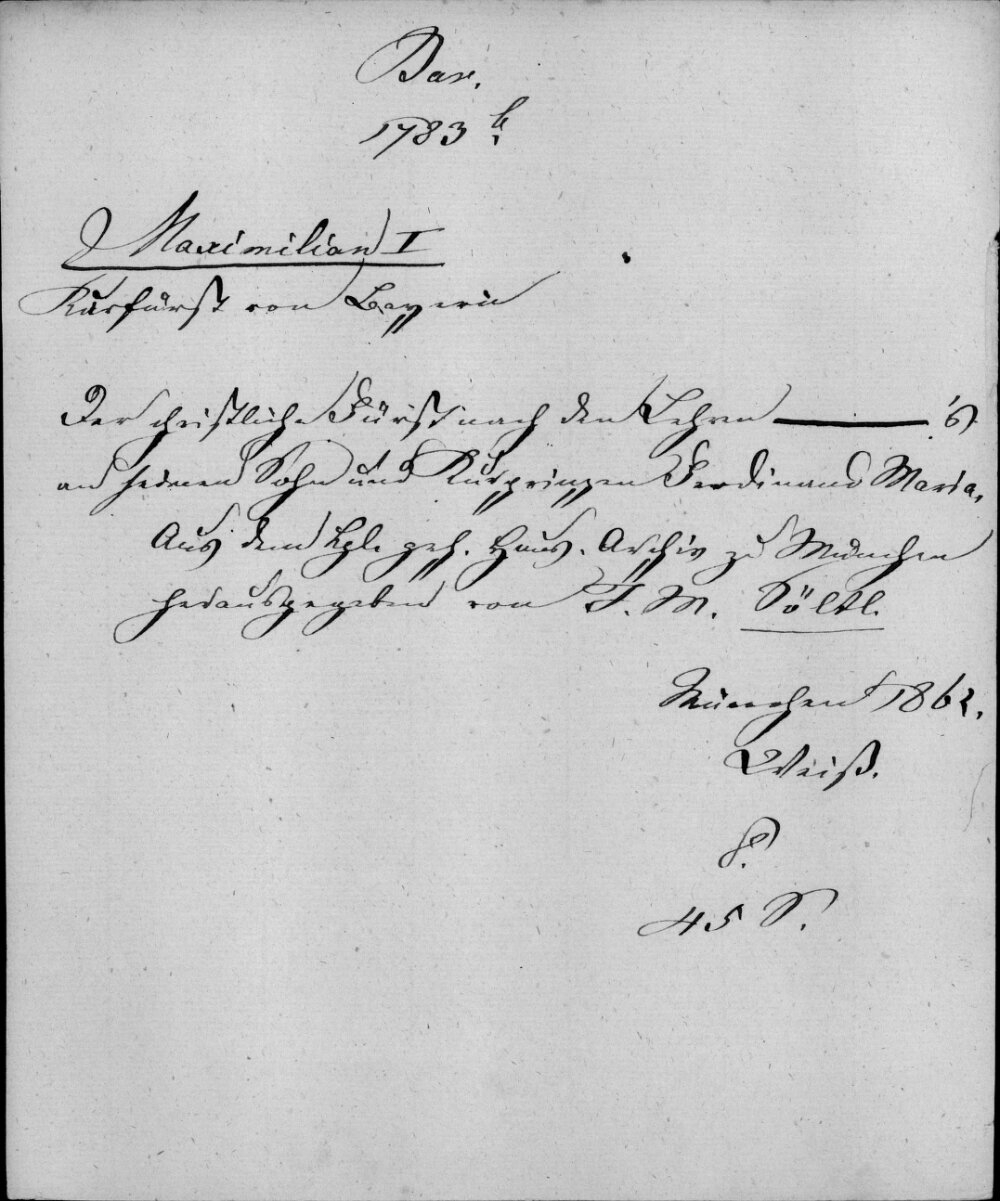 Bav.
1783 h.
Maximilian I
Kurfürst von Bayern
Der christliche Fürst nach den Lehren ———'s
an seinen Sohn und Kurprinzen Ferdinand Maria.
Aus dem kgl. geh. Haus-Archiv zu München
herausgegeben von J. M. Söltl.
München 1862.
Weiß.
8.
45 S.